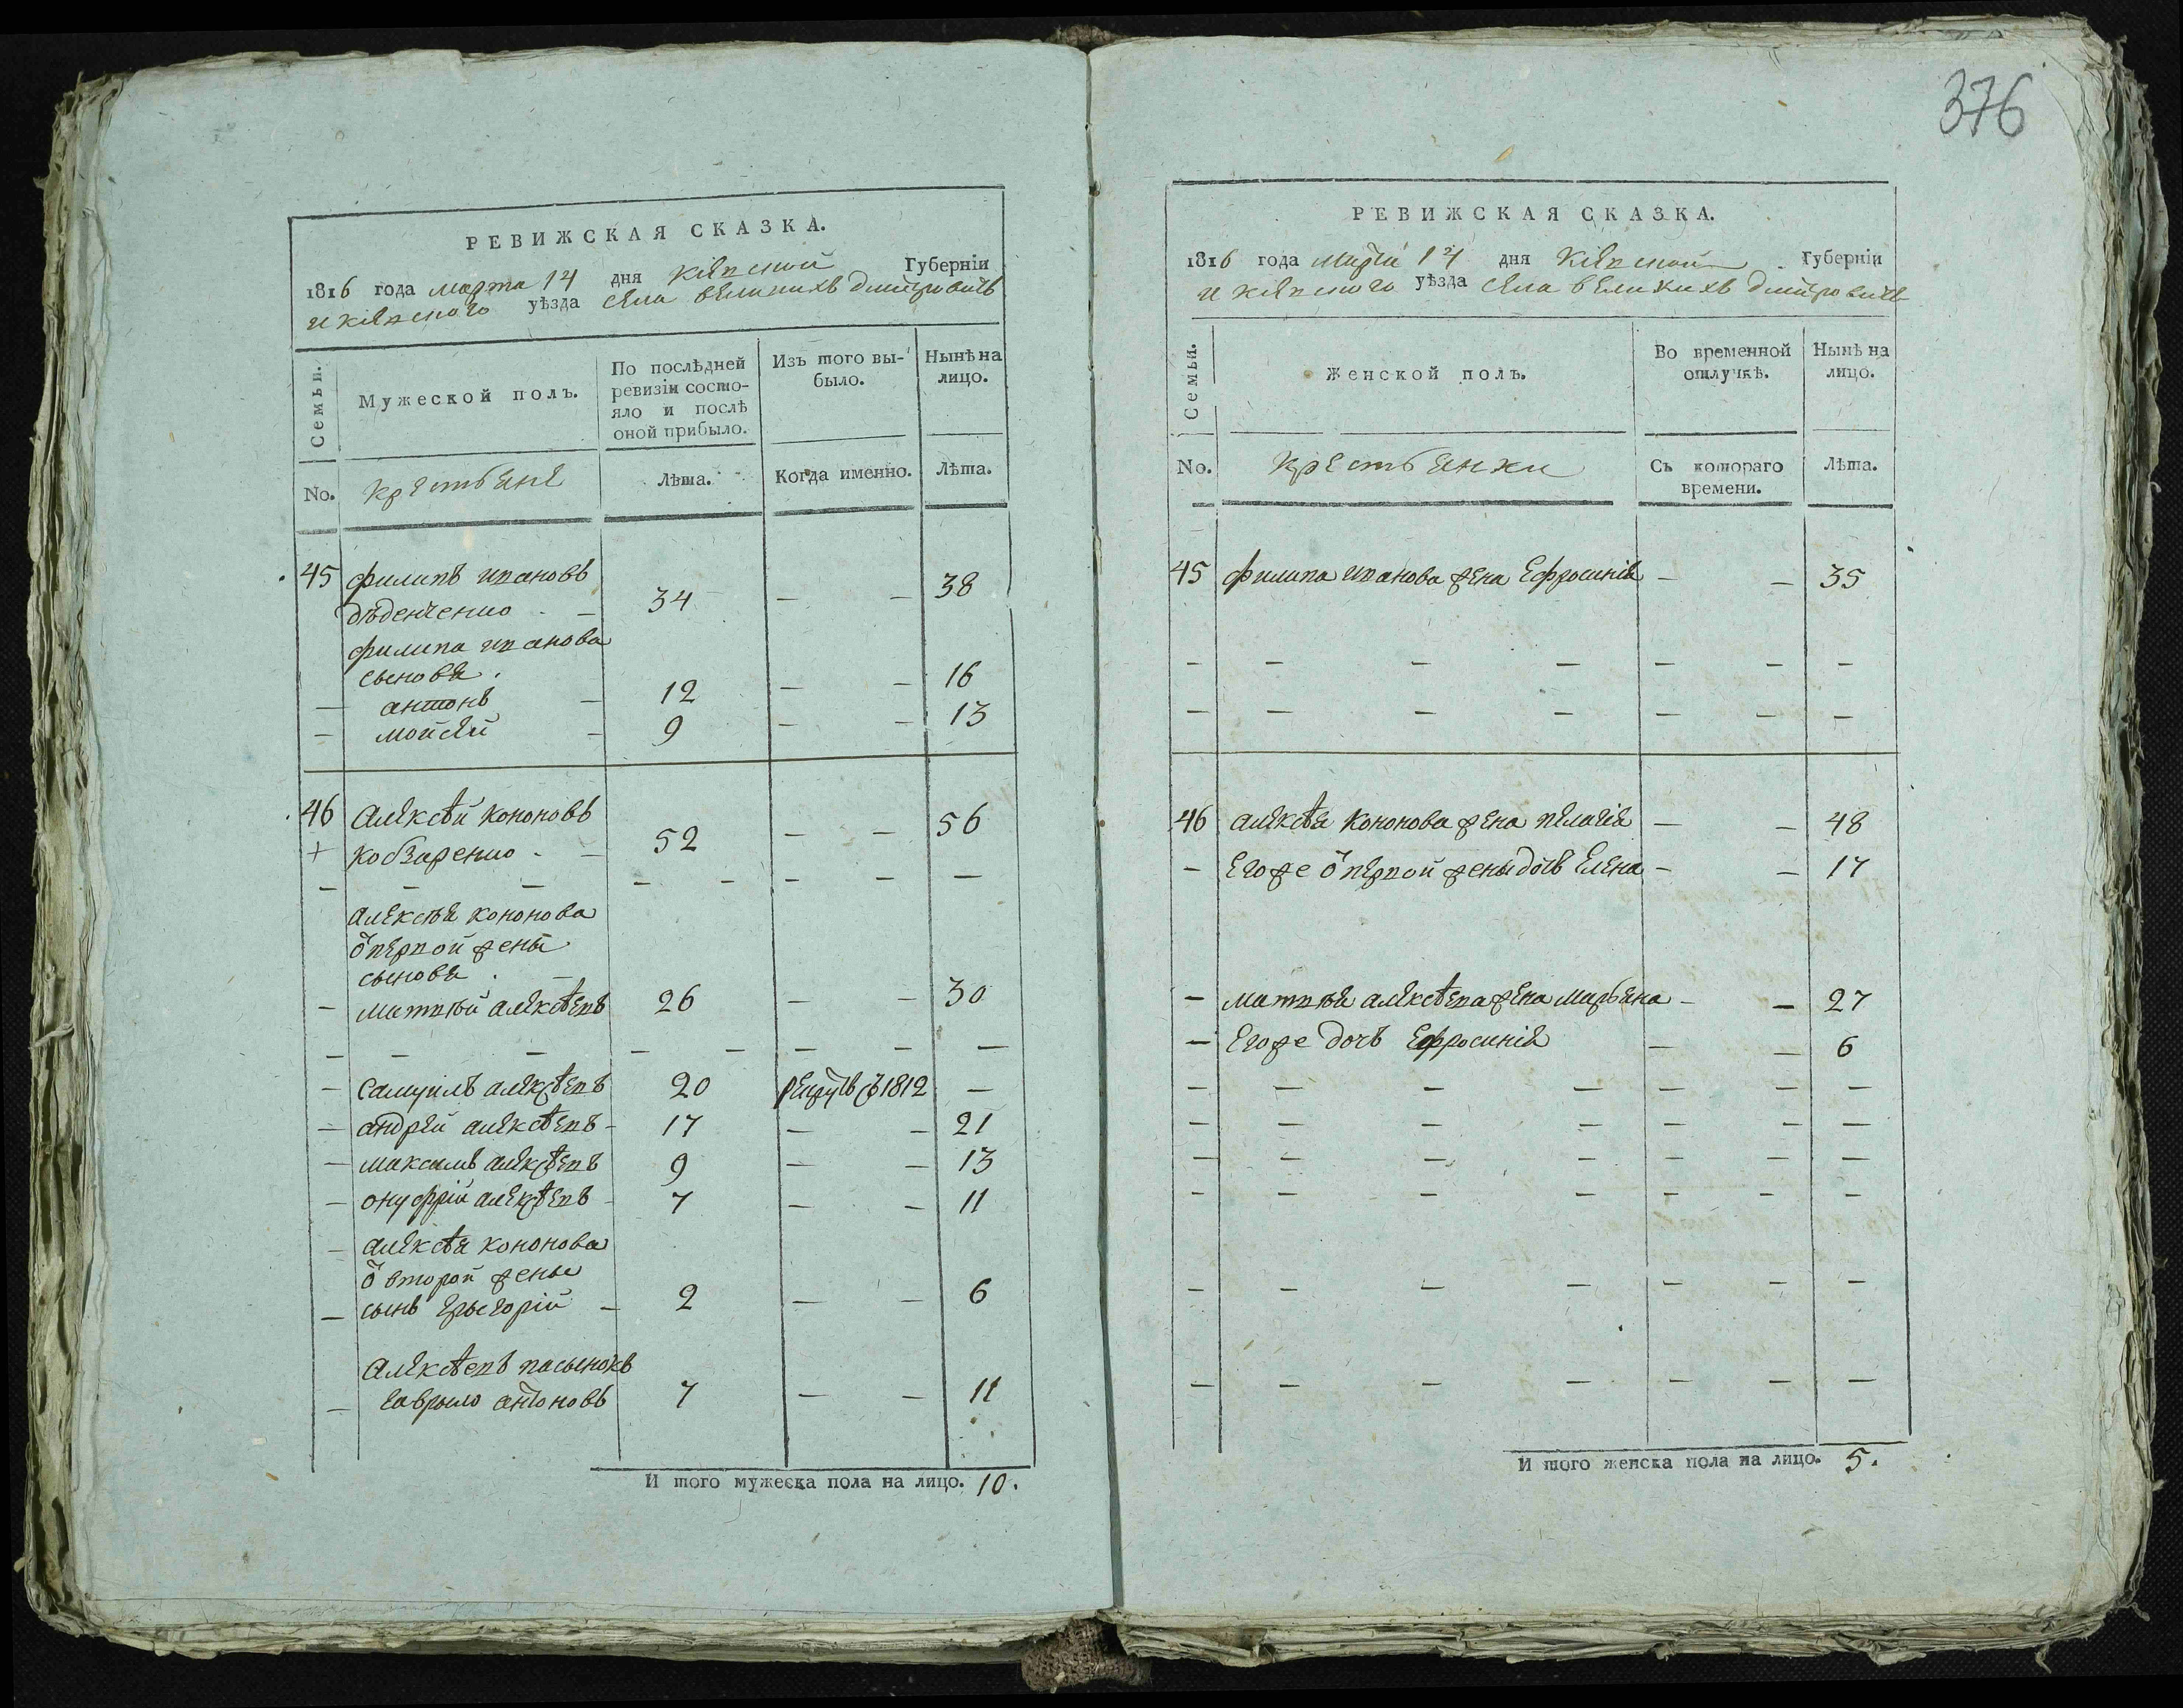 376
РЕВИЖСКАЯ СКАЗКА.
1816 года марта 14 дня Кіевской Губерніи
и Кіевского уѣзда села великихъ дмитровичъ
Семьи.
Мужеской полъ.
По послѣдней
ревизіи состо-
яло и послѣ
оной прибыло.
Изъ того вы-
было.
Нынѣ на
лицо.
No.
Крестьяне
Лѣта.
Когда именно.
Лѣта.
45 филипъ ивановъ
дѣденченко - — 34 — — 38
филипа иванова
сыновья.
— антонъ — 12 — — 16
— мойсей — 9 — — 13
46 Алексѣй кононовъ
+ кобзаренко - — 52 — — 56
— — — — — — — —
алексѣя кононова
ѿ первой жены
сыновья.
— матвѣй алексѣевъ 26 — — 30
— — — — — — — —
— самуилъ алексѣевъ 20 рекрутъ въ 1812 —
— андрей алексѣевъ - 17 — — 21
— максимъ алексѣевъ 9 — — 13
— онуфрій алексѣевъ - 7 — — 11
— алексѣя кононова
ѿ второй жены
— сынъ григорій — 2 — — 6
Алексѣевъ пасынокъ
— гаврыло антоновъ 7 — — 11
И того мужеска пола на лицо. 10.
РЕВИЖСКАЯ СКАЗКА.
1816 года марта 14 дня Кіевской Губерніи
и Кіевского уѣзда села великихъ дмитровичъ
Семьи.
Женской полъ.
Во временной
отлучкѣ.
Нынѣ на
лицо.
No.
Крестьянки
Съ котораго
времени.
Лѣта.
45 филипа иванова жена Ефросинія — — 35
— — — — — — —
— — — — — — —
46 алексѣя кононова жена пелагія — — 48
— Егоже ѿ первой жены дочь Елена — — 17
— матвѣя алексѣева жена марьяна — — 27
— Егоже дочь Ефросинія — — 6
— — — — — — —
— — — — — — —
— — — — — — —
— — — — — — —
— — — — — — —
— — — — — — —
И того женска пола на лицо. 5.